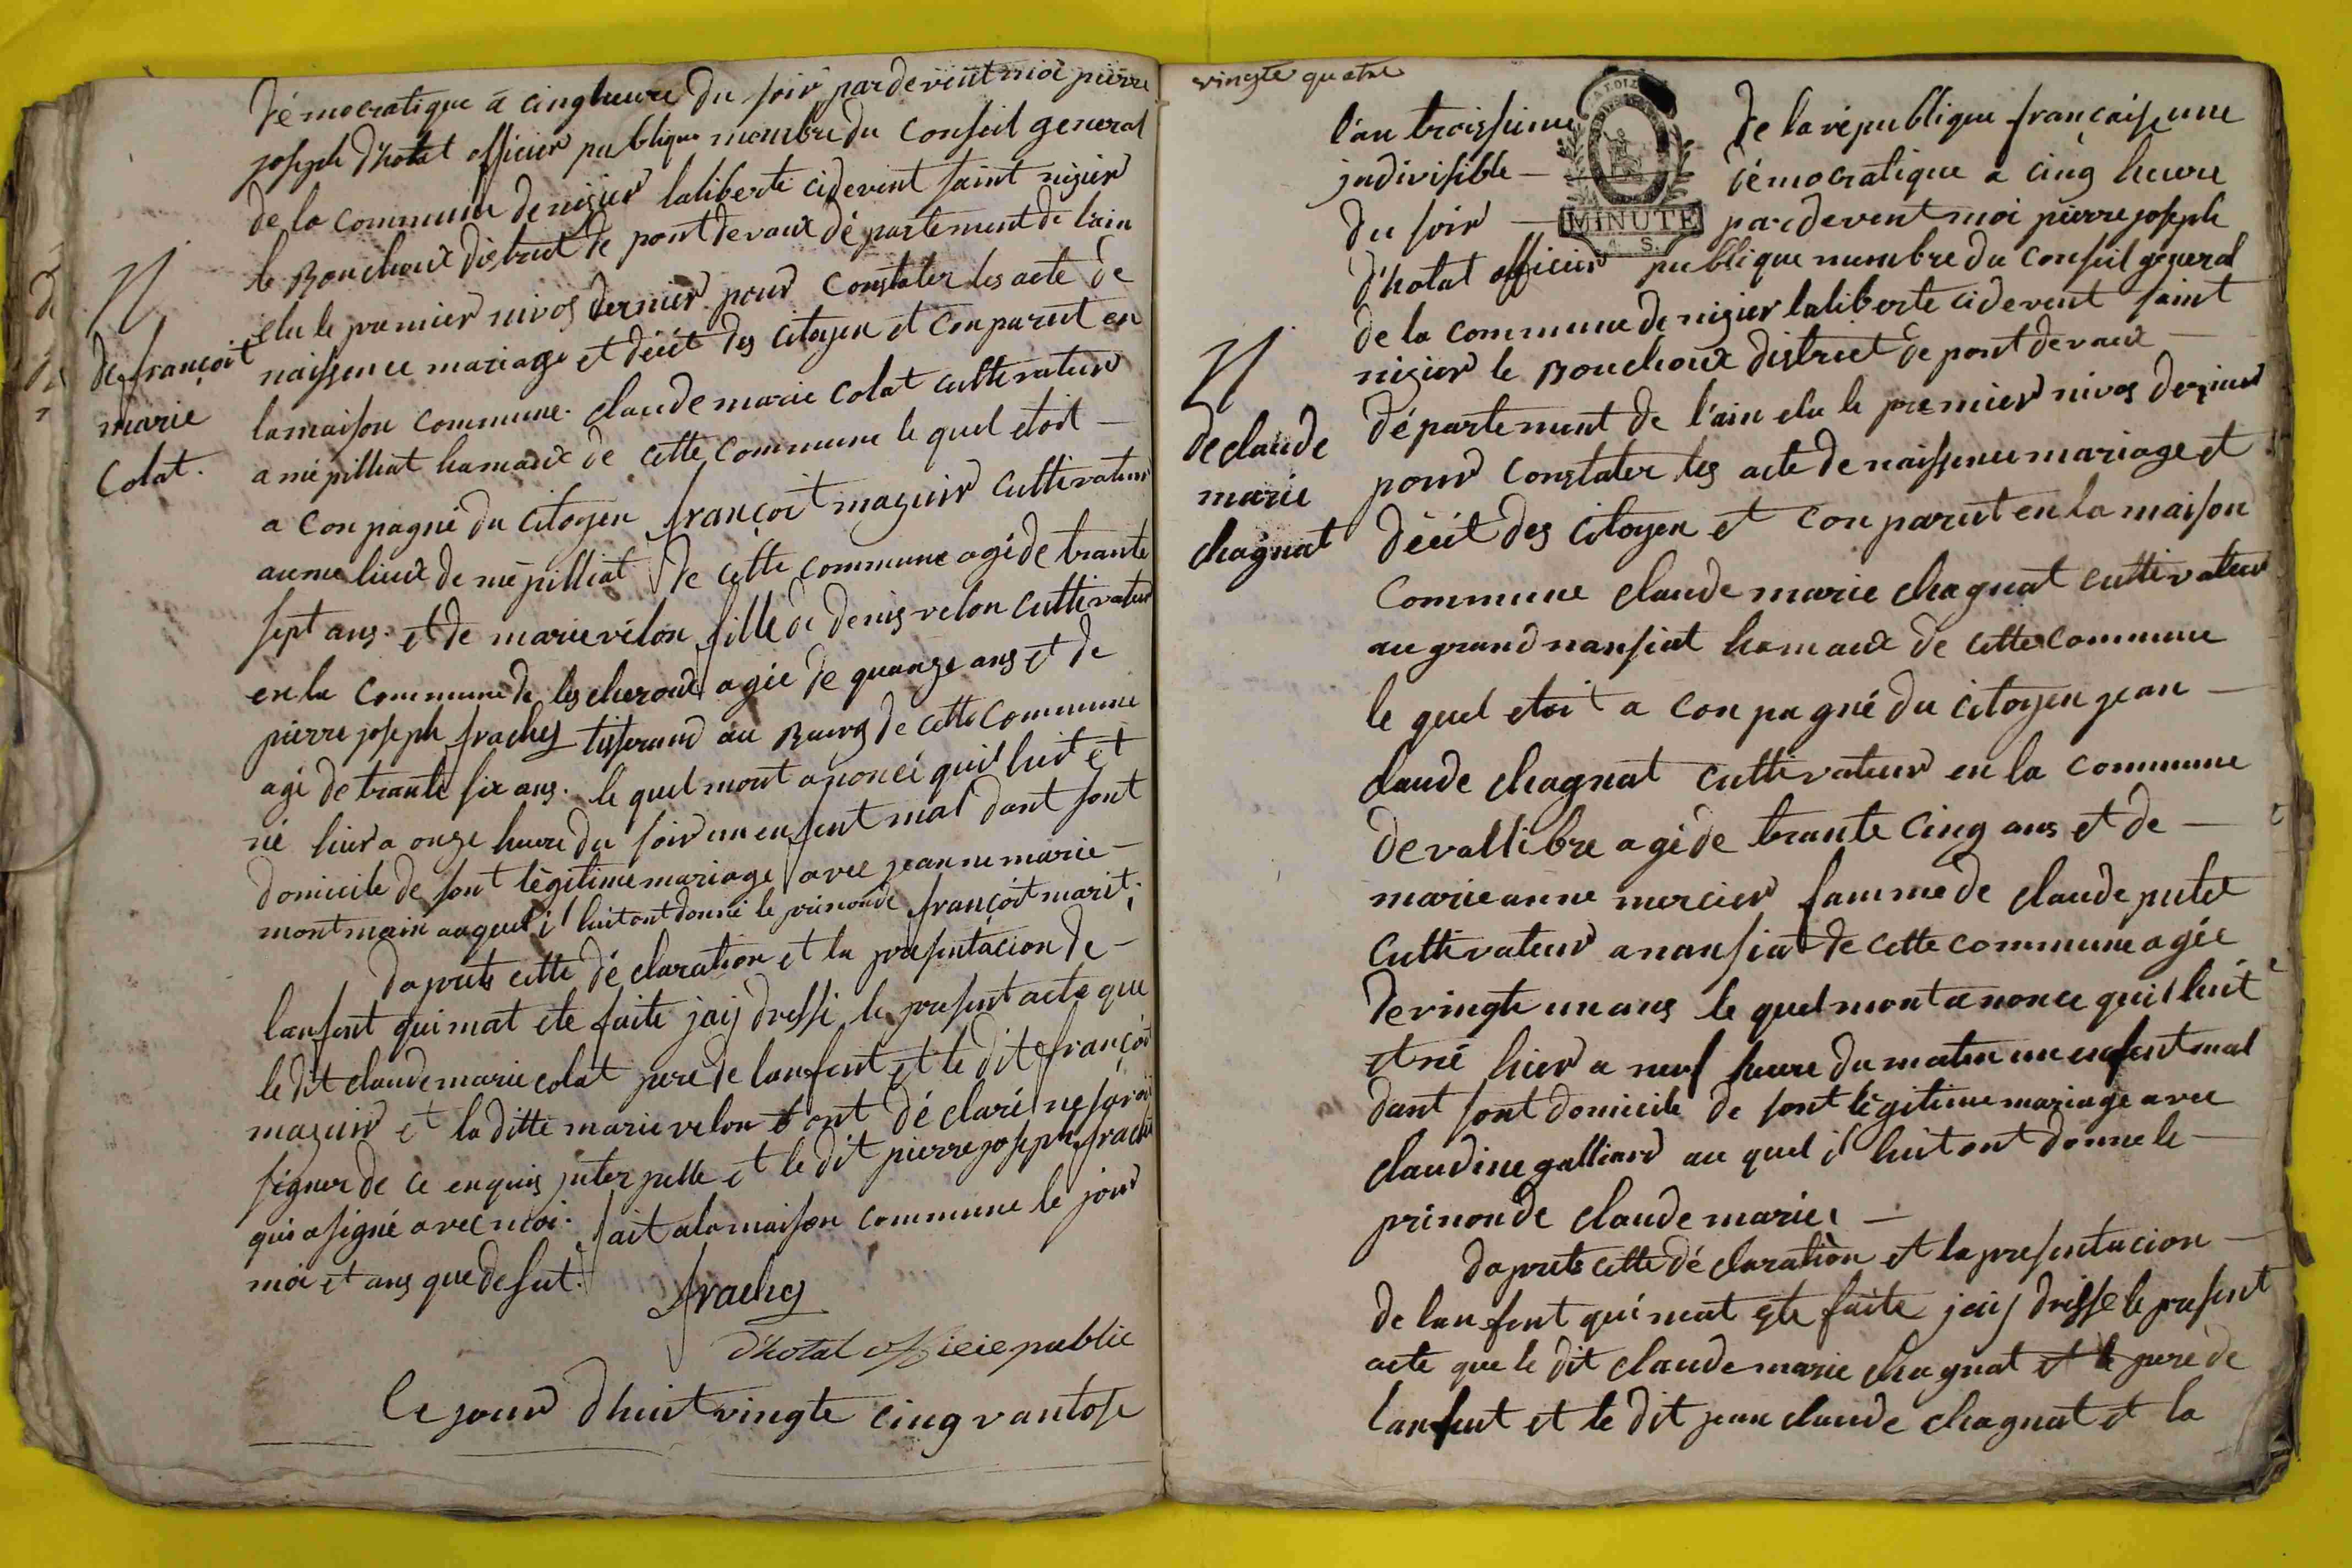 démocratique a cinq heure du soir par devent moi pierre
joseph d'hotat officier publique membre du conseil general
de la commune de nisier laliberté cidevent saint nisier
le Bouchoux district de pont devaux département de lain
elu le premier nivos dernier pour constater les acte de
naissence mariage et décit des citoyen et conparut en
la maison commune. claude marie colat cultivateur
a mépilliat hamaux de cette commune le quel etoit —
a conpagné du citoyen françoit maguin cultivateur
aume lieux de mépilliat de cette commune agé de trante
sept ans. et de marie vélon fille de denis velon cultivateur
en la commune de lescheroux agée de quanze ans et de
pierre joseph fraches tisserand au Bourg de cette commune
agé de trante six ans. le quel mont anoncé quil luit et
né hier a onze heure du soir un enfent mal dant sont
domicile de sont légitime mariage avec jeanne marie —
montmain auquel il luit ont donné le prinonde françoit marit.
daprets cette déclaration et la présentacion de —
lanfent quimat ete faite jaij dressé le present acte que
le dit claude marie colat pere de lanfent et le dit françoit
maguin et la ditte marie velon ont déclaré ne savoir
signer de ce enquis jnterpelle et le dit pierre joseph frache
qui a signé avec moi. fait a la maison commune le jour
moi et ans que desut.
fraches
d'hotat officie public
Ce jour d'huit vingte cinq vantose
N
de françoit
marie
Colat.
vingte quatre
l'an troissieme de la république française une
jndivisible — démocratique a cinq heure
du soir — par devent moi pierre joseph
d'hotat officier publique membre du conseil general
de la commune de nisier laliberte cidevent saint
nisier le Bouchoux district de pont devaux —
département de l'ain elu le premier nivos dernier
pour constater les acte de naissence mariage et
décit des citoyen et conparut en la maison
commune claude marie chagnat cultivateur
au grand nansiat hamaux de cette commune
le quel etoit a conpagné du citoyen jean —
claude chagnat cultivateur en la commune
de vallibre agé de trante cinq ans et de —
marie anne mercier famme de claude putet
cultivateur a nansiat de cette commune agée
de vingte un ans le quel mont anonce quil luit
et né hier a neuf heure du matin un enfent mal
dant sont domicile de sont légitime mariage avec
claudine galliard au quel il luit ont donne le —
prinonde claude marie. —
daprets cette déclaration et la presentacion —
de lanfent qui mat ete faite jaij dresse le present
acte que le dit claude marie chagnat et le pere de
lanfent et le dit jean claude chagnat et la
MINUTE
N
de claude
marie
chagnat